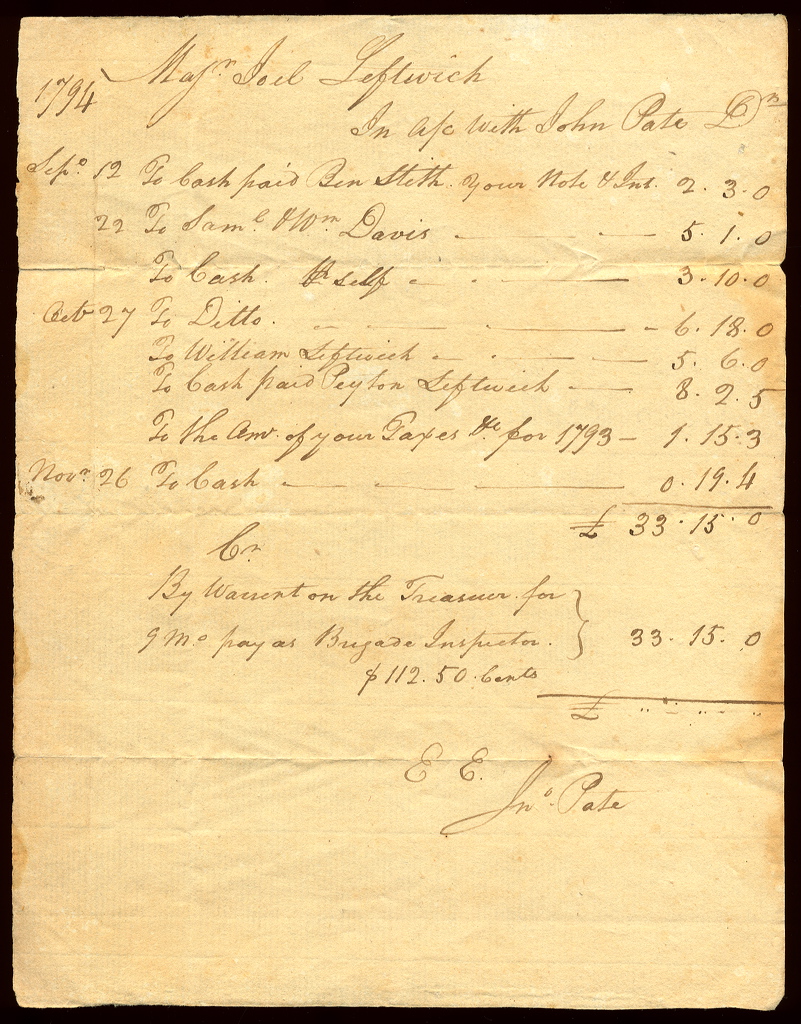 1794 Majr. Joel Leftwich
In a/c with John Pate Dr
Sepr. 12 To Cash paid Ben Stith. your Note & Int. 2. 3. 0
22 To Saml. & Wm Davis 5. 1. 0
To Cash. pr self 3. 10. 0
Octr 27 To Ditto. 6. 18. 0
To William Leftwich 5. 6. 0
To Cash paid Peyton Leftwich 8. 2. 5
To the Amt. of your Taxes &c for 1793 — 1. 15. 3
Novr. 26 To Cash 0. 19. 4
£ 33. 15. 0
Cr.
By Warrent on the Treasurer for
9 Mo. pay as Brigade Inspector. } 33. 15. 0
$112. 50. Cents
£ " " " "
E E.
Jno. Pate